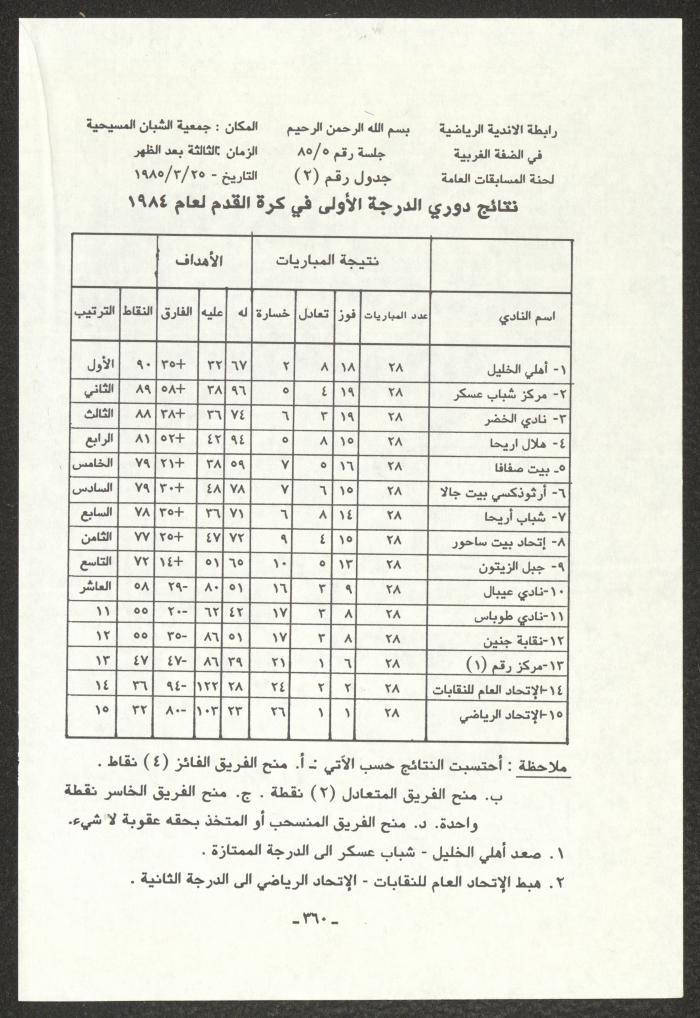 رابطة الاندية الرياضية بسم الله الرحمن الرحيم المكان : جمعية الشبان المسيحية
في الضفة الغربية جلسة رقم ٨٥/٥ الزمان : الثالثة بعد الظهر
لجنة المسابقات العامة جدول رقم (٢) التاريخ - ١٩٨٥/٣/٢٥
نتائج دوري الدرجة الأولى في كرة القدم لعام ١٩٨٤
نتيجة المباريات الأهداف
اسم النادي عدد المباريات فوز تعادل خسارة له عليه الفارق النقاط الترتيب
١- أهلي الخليل ٢٨ ١٨ ٨ ٢ ٦٧ ٣٢ +٣٥ ٩٠ الأول
٢- مركز شباب عسكر ٢٨ ١٩ ٤ ٥ ٩٦ ٣٨ +٥٨ ٨٩ الثاني
٣- نادي الخضر ٢٨ ١٩ ٣ ٦ ٧٤ ٣٦ +٣٨ ٨٨ الثالث
٤- هلال اريحا ٢٨ ١٥ ٨ ٥ ٩٤ ٤٢ +٥٢ ٨١ الرابع
٥- بيت صفافا ٢٨ ١٦ ٥ ٧ ٥٩ ٣٨ +٢١ ٧٩ الخامس
٦- أرثوذكسي بيت جالا ٢٨ ١٥ ٦ ٧ ٧٨ ٤٨ +٣٠ ٧٩ السادس
٧- شباب أريحا ٢٨ ١٤ ٨ ٦ ٧١ ٣٦ +٣٥ ٧٨ السابع
٨- إتحاد بيت ساحور ٢٨ ١٥ ٤ ٩ ٧٢ ٤٧ +٢٥ ٧٧ الثامن
٩- جبل الزيتون ٢٨ ١٣ ٥ ١٠ ٦٥ ٥١ +١٤ ٧٢ التاسع
١٠-نادي عيبال ٢٨ ٩ ٣ ١٦ ٥١ ٨٠ -٢٩ ٥٨ العاشر
١١-نادي طوباس ٢٨ ٨ ٣ ١٧ ٤٢ ٦٢ -٢٠ ٥٥ ١١
١٢-نقابة جنين ٢٨ ٨ ٣ ١٧ ٥١ ٨٦ -٣٥ ٥٥ ١٢
١٣-مركز رقم (١) ٢٨ ٦ ١ ٢١ ٣٩ ٨٦ -٤٧ ٤٧ ١٣
١٤-الإتحاد العام للنقابات ٢٨ ٢ ٢ ٢٤ ٢٨ ١٢٢ -٩٤ ٣٦ ١٤
١٥-الإتحاد الرياضي ٢٨ ١ ١ ٢٦ ٢٣ ١٠٣ -٨٠ ٣٢ ١٥
ملاحظة : أحتسبت النتائج حسب الآتي :ـ أ. منح الفريق الفائز (٤) نقاط .
ب. منح الفريق المتعادل (٢) نقطة . ج. منح الفريق الخاسر نقطة
واحدة. د. منح الفريق المنسحب أو المتخذ بحقه عقوبة لا شيء.
١. صعد أهلي الخليل - شباب عسكر الى الدرجة الممتازة .
٢. هبط الإتحاد العام للنقابات - الإتحاد الرياضي الى الدرجة الثانية .
ـ ٣٦٠ ـ